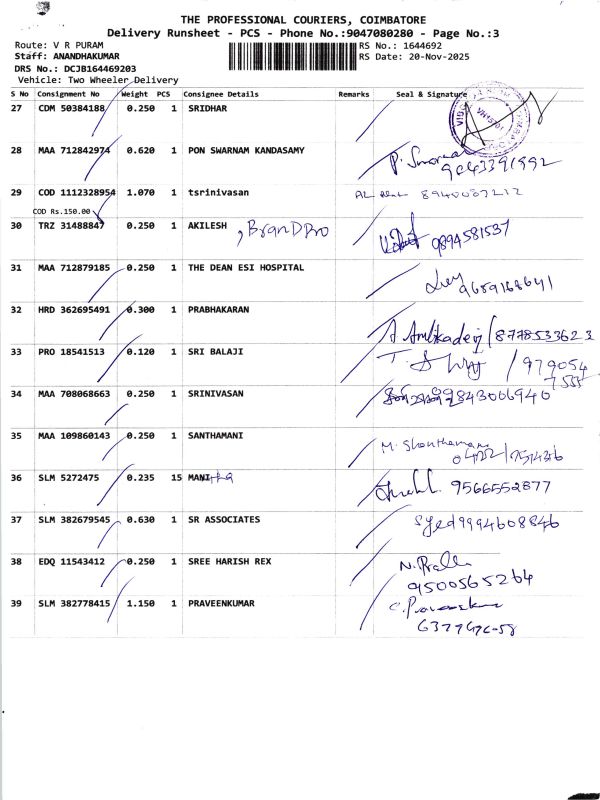 THE PROFESSIONAL COURIERS, COIMBATORE
Delivery Runsheet - PCS - Phone No.:9047080280 - Page No.:3
Route: V R PURAM RS No.: 1644692
Staff: ANANDHAKUMAR RS Date: 20-Nov-2025
DRS No.: DCJB164469203
Vehicle: Two Wheeler Delivery
S No Consignment No Weight PCS Consignee Details Remarks Seal & Signature
27 CDM 50384188 0.250 1 SRIDHAR
28 MAA 712842974 0.620 1 PON SWARNAM KANDASAMY
9043391992
29 COD 1112328954 1.070 1 tsrinivasan
COD Rs.150.00
30 TRZ 31488847 0.250 1 AKILESH , BranDPro
9894581537
31 MAA 712879185 0.250 1 THE DEAN ESI HOSPITAL
32 HRD 362695491 0.300 1 PRABHAKARAN
33 PRO 18541513 0.120 1 SRI BALAJI
34 MAA 708068663 0.250 1 SRINIVASAN
9843006940
35 MAA 109860143 0.250 1 SANTHAMANI
36 SLM 5272475 0.235 15 MANI
9566552877
37 SLM 382679545 0.630 1 SR ASSOCIATES
Syed 9994608846
38 EDQ 11543412 0.250 1 SREE HARISH REX
9500565264
39 SLM 382778415 1.150 1 PRAVEENKUMAR